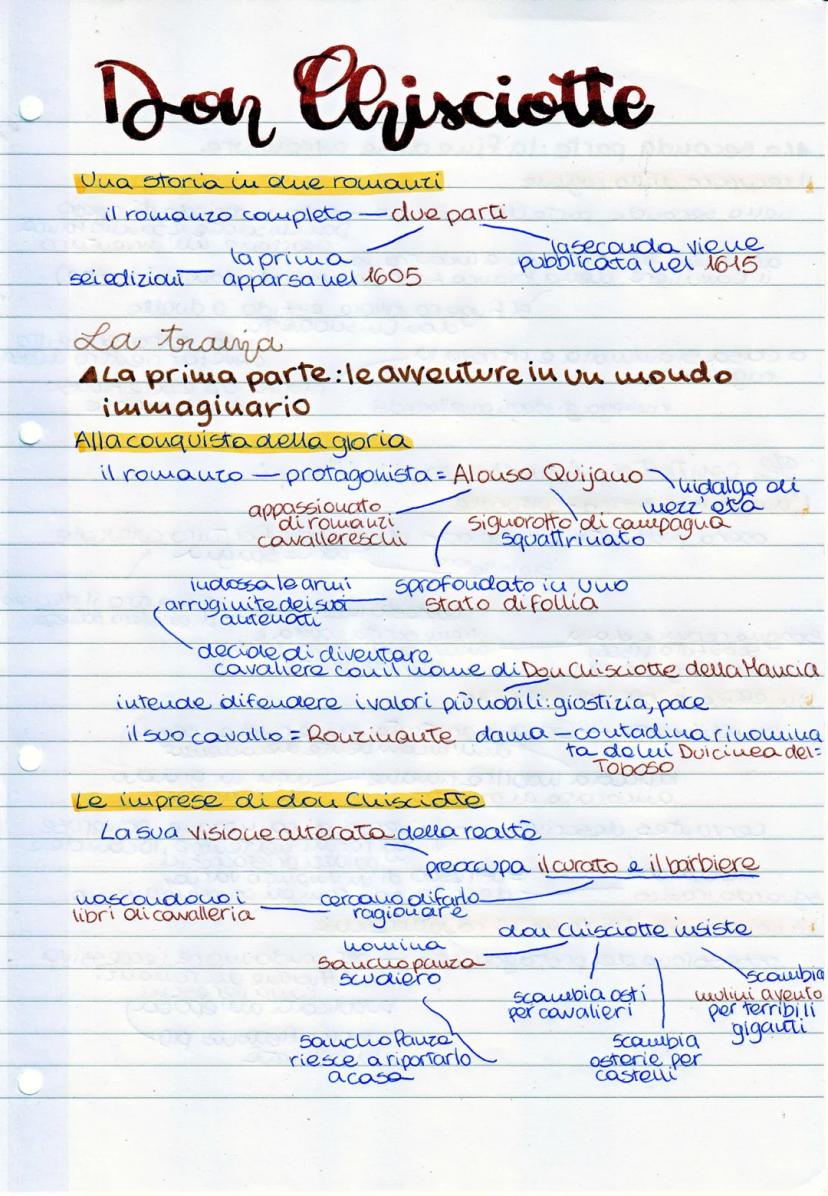 Don Chisciotte
Una storia in due romanzi
il romanzo completo — due parti
la prima
sei edizioni — apparsa nel 1605
la seconda viene
pubblicata nel 1615
La trama
La prima parte: le avventure in un mondo
immaginario
Alla conquista della gloria
il romanzo — protagonista = Alonso Quijano
hidalgo di
mezz'età
appassionato
di romanzi
cavallereschi
signorotto di campagna
squattrinato
sprofondato in uno
stato di follia
indossa le armi
arruginite dei suoi
antenati
decide di diventare
cavaliere con il nome di Don Chisciotte della Mancia
intende difendere i valori più nobili: giustizia, pace
il suo cavallo = Ronzinante dama — contadina rinomina
ta da lui Dulcinea del =
Toboso
Le imprese di don Chisciotte
La sua visione alterata della realtà
preoccupa il curato e il barbiere
cercano di farlo
ragionare
nascondono i
libri di cavalleria
don Chisciotte insiste
nomina
Sancho panza
scudiero
Sancho Panza
riesce a riportarlo
a casa
scambia osti
per cavalieri
scambia
osterie per
castelli
scambia
mulini a vento
per terribili
giganti